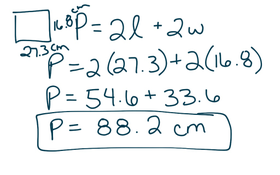 16.8 cm P = 2l + 2w
27.3 cm
P = 2(27.3) + 2(16.8)
P = 54.6 + 33.6
P = 88.2 cm